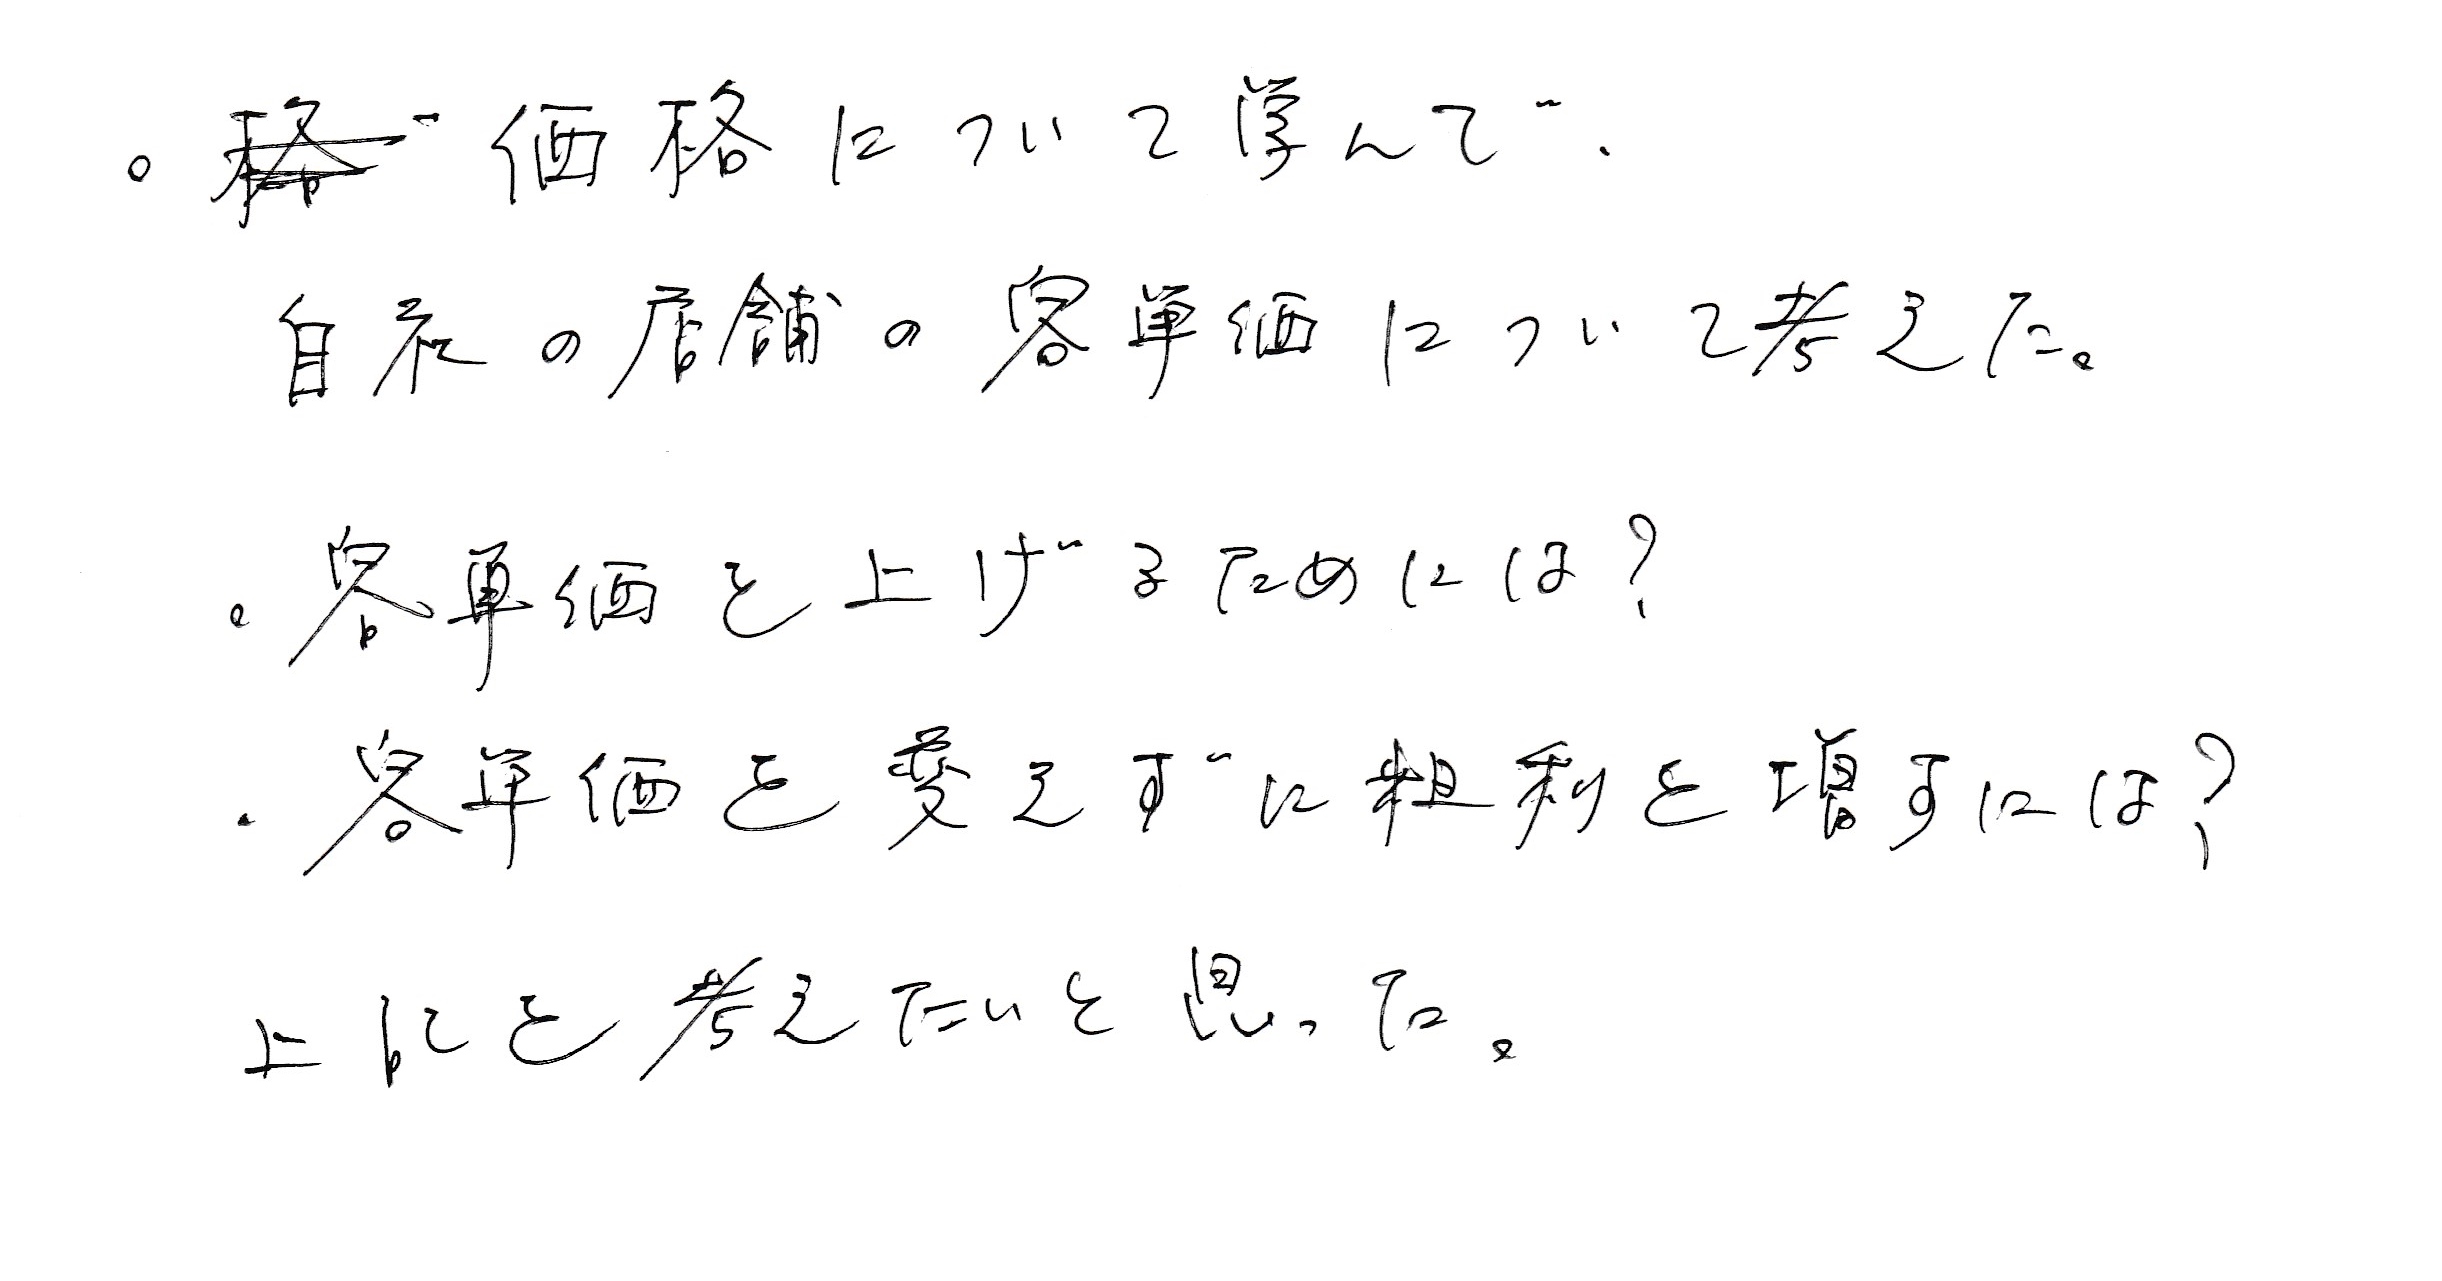 。価格について学んで、
自社の店舗の客単価について考えた。
・客単価を上げるためには?
・客単価を変えずに粗利を増すには?
上記を考えたいと思った。